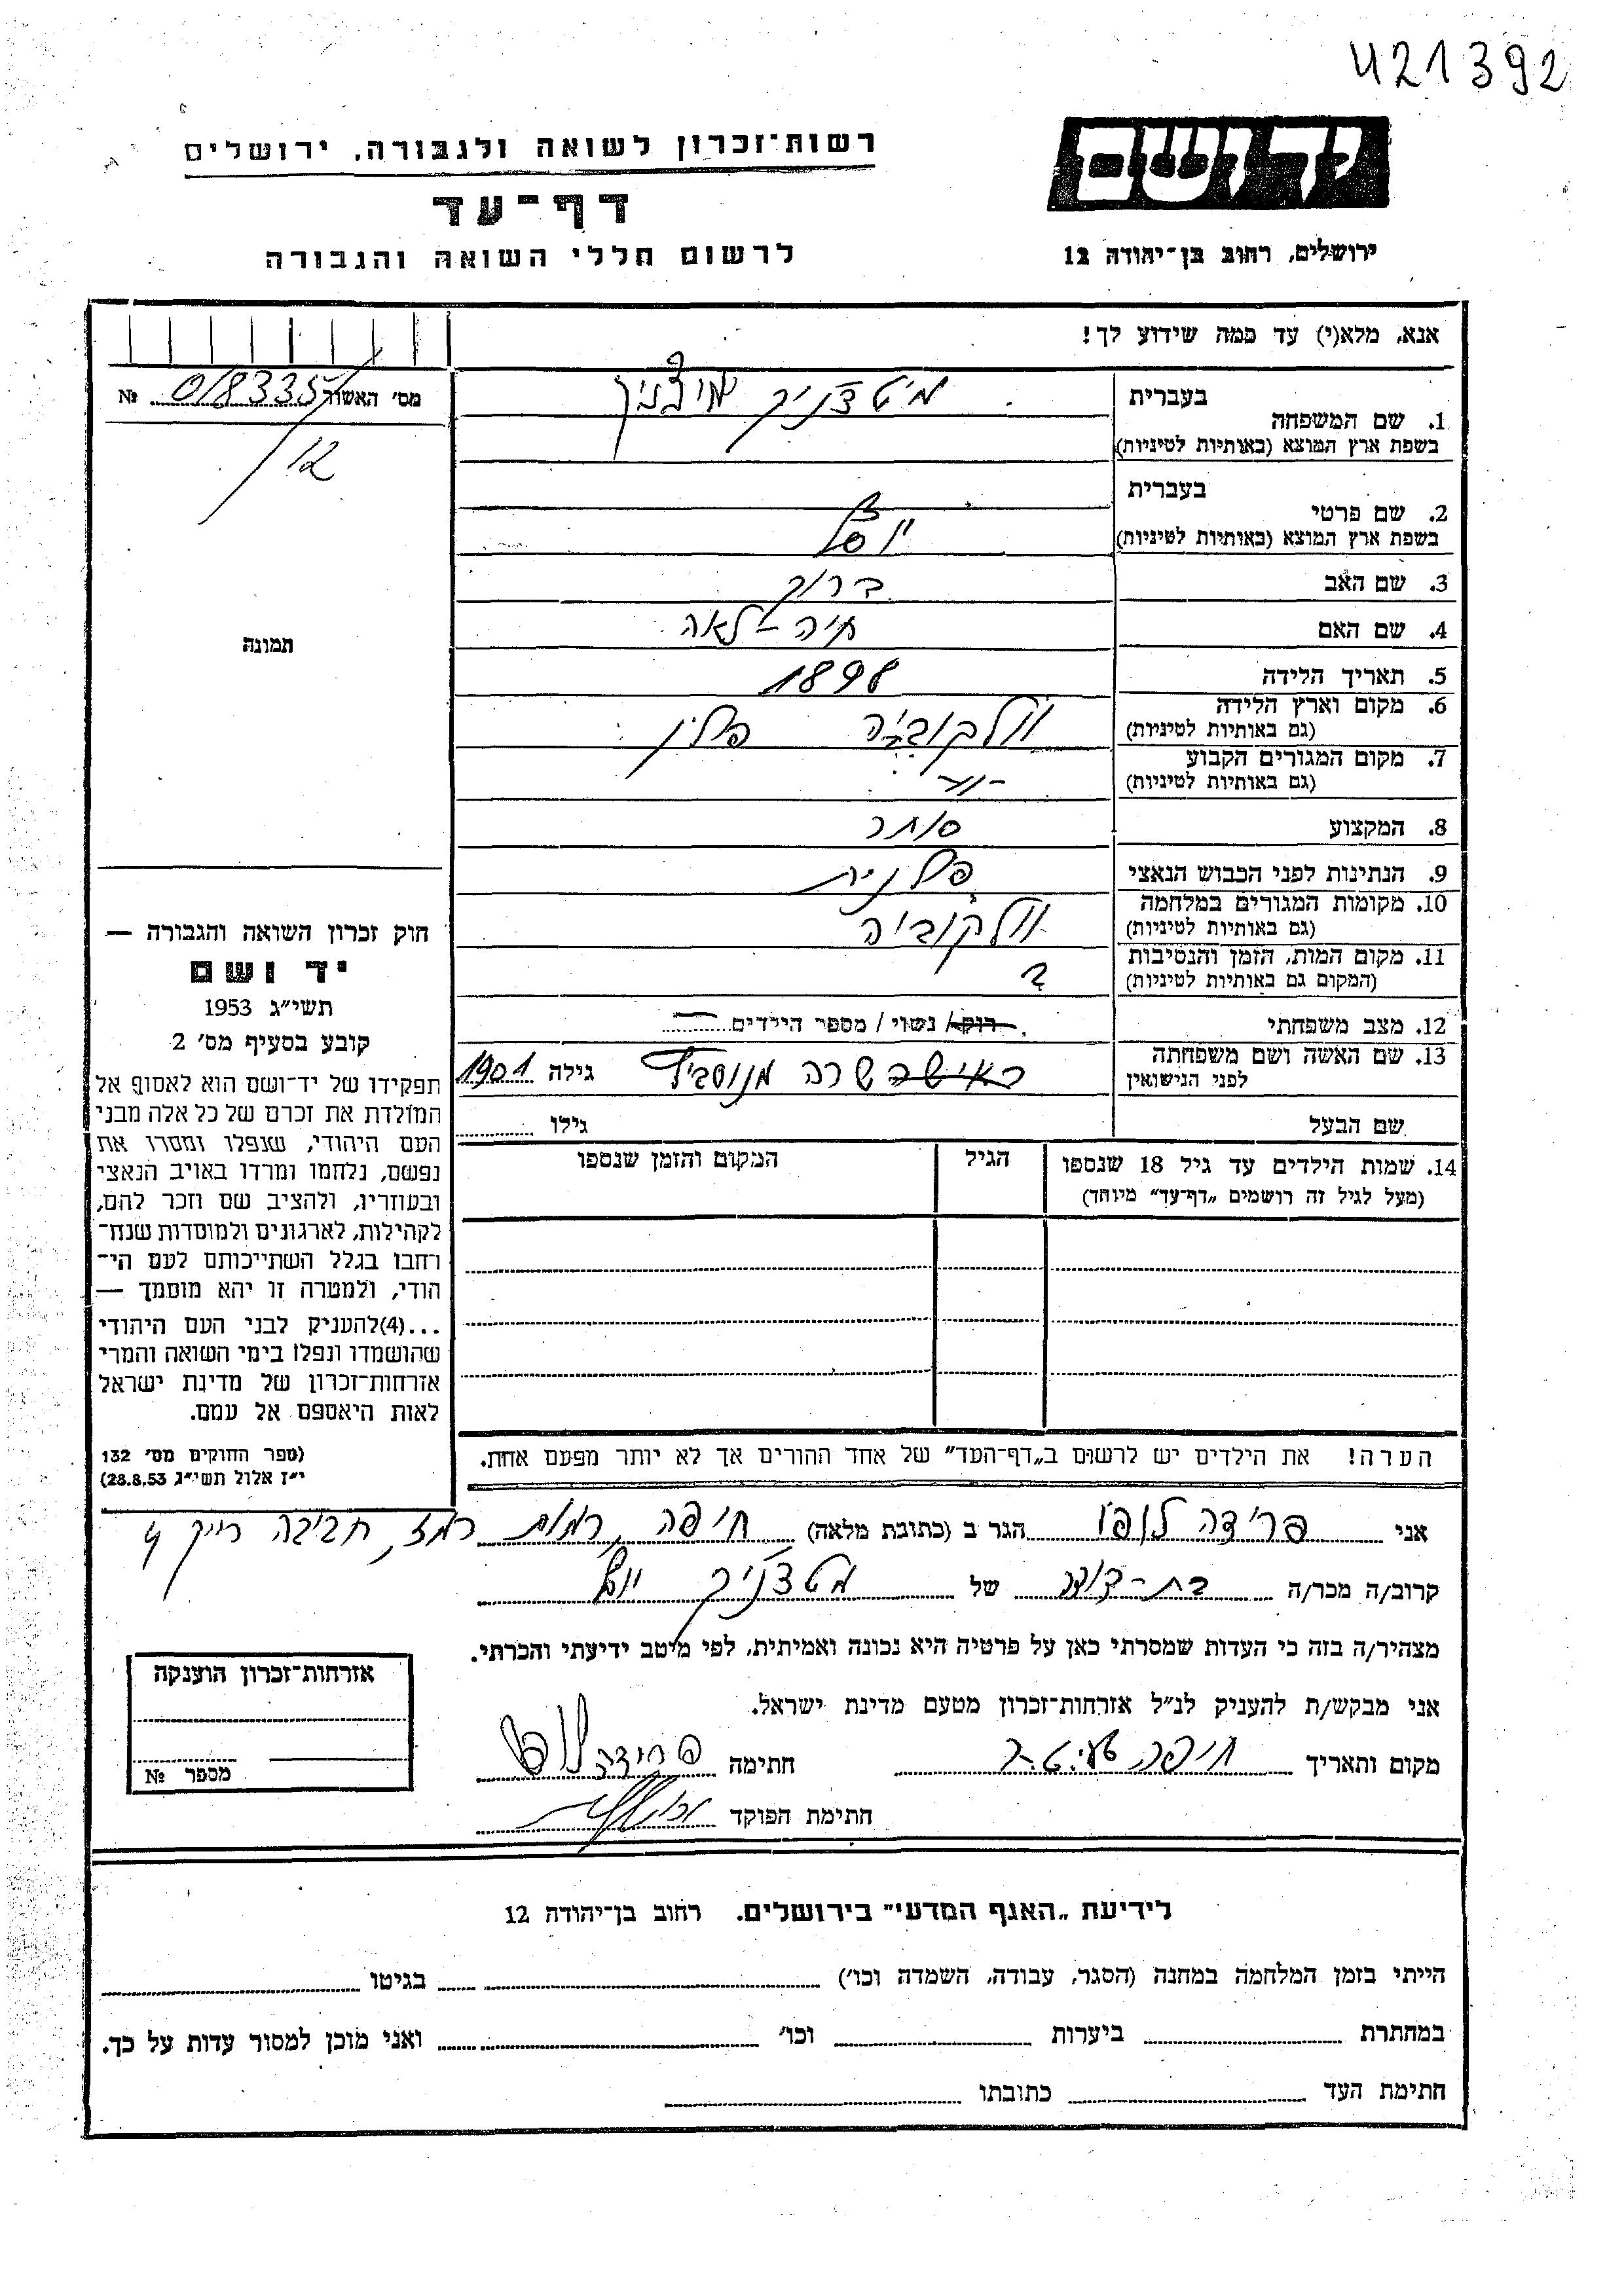 421392
יד ושם
רשות־זכרון לשואה ולגבורה, ירושלים
דף־עד
לרשום חללי השואה והגבורה
ירושלים, רחוב בן־יהודה 12
אנא, מלא(י) עד כמה שידוע לך!
מס׳ האשור 018335 №
12
תמונה
1. שם המשפחה בעברית
בשפת ארץ המוצא (באותיות לטיניות)
2. שם פרטי בעברית
בשפת ארץ המוצא (באותיות לטיניות)
יוסל
3. שם האב ברוך
4. שם האם חיה - לאה
5. תאריך הלידה 1898
6. מקום וארץ הלידה פולין
(גם באותיות לטיניות)
7. מקום המגורים הקבוע
(גם באותיות לטיניות)
8. המקצוע סוחר
9. הנתינות לפני הכבוש הנאצי פולנית
10. מקומות המגורים במלחמה
(גם באותיות לטיניות)
11. מקום המות, הזמן והנסיבות ?
(המקום גם באותיות לטיניות)
12. מצב משפחתי רוק / נשוי / מספר הילדים
13. שם האשה ושם משפחתה שרה גילה 1901
לפני הנישואין
שם הבעל גילו
14. שמות הילדים עד גיל 18 שנספו הגיל המקום והזמן שנספו
(מעל לגיל זה רושמים „דף־עד״ מיוחד)
חוק זכרון השואה והגבורה —
יד ושם
תשי״ג 1953
קובע בסעיף מס׳ 2
תפקידו של יד־ושם הוא לאסוף אל
המולדת את זכרם של כל אלה מבני
העם היהודי, שנפלו ומסרו את
נפשם, נלחמו ומרדו באויב הנאצי
ובעוזריו, ולהציב שם וזכר להם,
לקהילות, לארגונים ולמוסדות שנח־
רחבו בגלל השתייכותם לעם הי־
הודי, ולמטרה זו יהא מוסמך —
...(4)להעניק לבני העם היהודי
שהושמדו ונפלו בימי השואה והמרי
אזרחות־זכרון של מדינת ישראל
לאות היאספם אל עמם.
(ספר החוקים מס׳ 132
י״ז אלול תשי״ג 28.8.53)
הערה! את הילדים יש לרשום ב„דף־העד״ של אחד ההורים אך לא יותר מפעם אחת.
אני פרידה לופו הגר ב (כתובת מלאה) חיפה, רמות רמז, חביבה רייק 4
קרוב/ה מכר/ה בת-דודה של
מצהיר/ה בזה כי העדות שמסרתי כאן על פרטיה היא נכונה ואמיתית, לפי מיטב ידיעתי והכרתי.
אני מבקש/ת להעניק לנ״ל אזרחות־זכרון מטעם מדינת ישראל.
מקום ותאריך חיפה חתימה פרידה לופו
חתימת הפוקד
אזרחות־זכרון הוענקה
מספר №
לידיעת „האגף המדעי״ בירושלים. רחוב בן־יהודה 12
הייתי בזמן המלחמה במחנה (הסגר, עבודה, השמדה וכו׳) בגיטו
במחתרת ביערות וכו׳ ואני מוכן למסור עדות על כך.
חתימת העד כתובתו